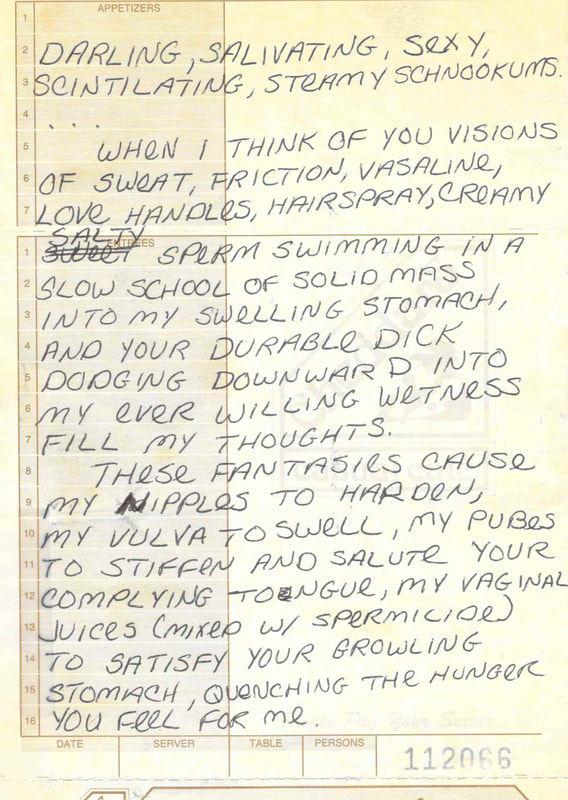 APPETIZERS
1
2 DARLING, SALIVATING, SEXY,
3 SCINTILATING, STEAMY SCHNOOKUMS.
4 ...
5 WHEN I THINK OF YOU VISIONS
6 OF SWEAT, FRICTION, VASALINE,
7 LOVE HANDLES, HAIRSPRAY, CREAMY
SALTY
ENTREES
1 SWEET SPERM SWIMMING IN A
2 SLOW SCHOOL OF SOLID MASS
3 INTO MY SWELLING STOMACH,
4 AND YOUR DURABLE DICK
5 DODGING DOWNWARD INTO
6 MY EVER WILLING WETNESS
7 FILL MY THOUGHTS.
8 THESE FANTASIES CAUSE
9 MY NIPPLES TO HARDEN,
10 MY VULVA TO SWELL, MY PUBES
11 TO STIFFEN AND SALUTE YOUR
12 COMPLYING TONGUE, MY VAGINAL
13 JUICES (MIXED W/ SPERMICIDE)
14 TO SATISFY YOUR GROWLING
15 STOMACH, QUENCHING THE HUNGER
16 YOU FEEL FOR ME
Pay Your Server
DATE SERVER TABLE PERSONS 112066